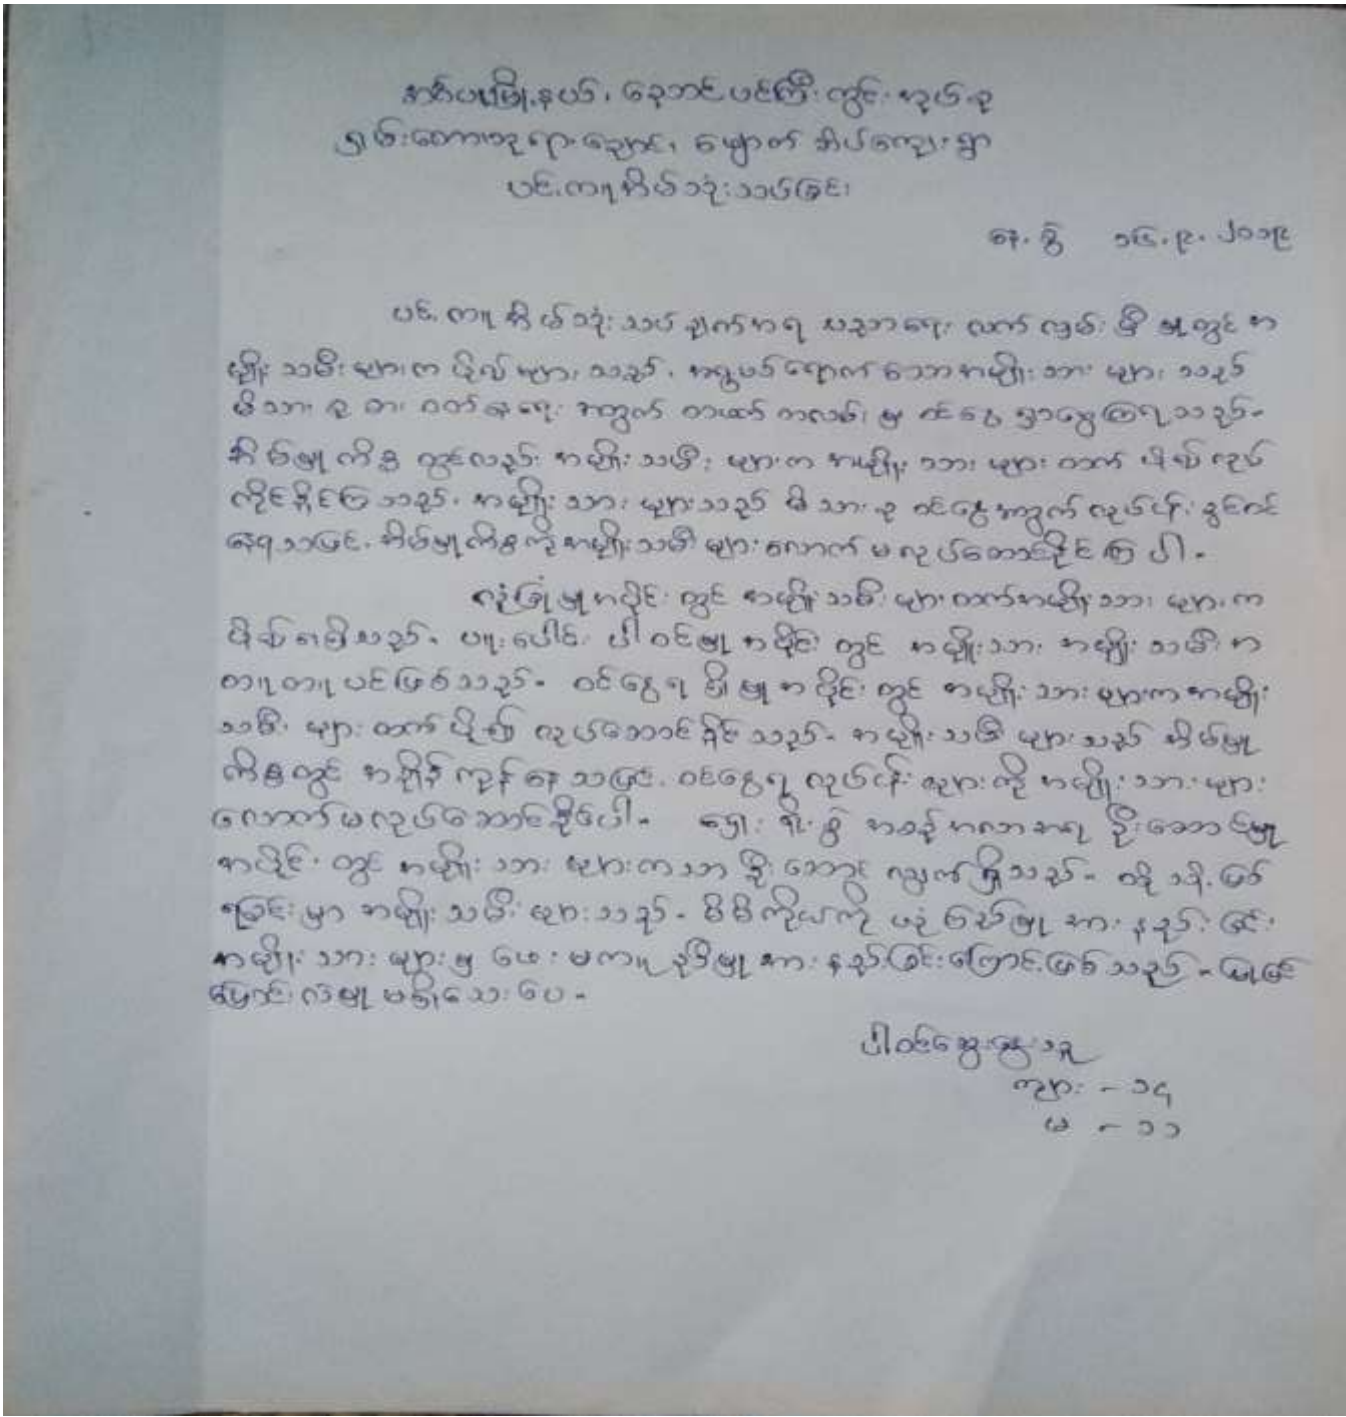 အင်းပုမြို့နယ်၊ ညောင်ပင်ကြီးကွင်းအုပ်စု
ကျေးရွာ
ပင့်ကူအိမ်သုံးသပ်ခြင်း
နေ့စွဲ ၁၆.၉.၂၀၁၉
ပင့်ကူအိမ်သုံးသပ်ချက်အရ ပညာရေး လက်လှမ်းမှီမှုတွင် အ
မျိုးသမီးများက ပိုလုပ်များသည်. အရွယ်ရောက်သောအမျိုးသားများသည်
မိသားစု စားဝတ်နေရေးအတွက် တစ်ဖက်တစ်လမ်းမှ ဝင်ငွေရှာဖွေကြရသည်-
အိမ်မှုကိစ္စတွင်လည်း အမျိုးသမီးများက အမျိုးသားများထက် ပိုမိုလုပ်
ကိုင်နိုင်ကြသည်. အမျိုးသားများသည် မိသားစုဝင်ငွေအတွက် လုပ်ငန်းခွင်ဝင်
နေရသဖြင့် အိမ်မှုကိစ္စကို အမျိုးသမီးများလောက် မလုပ်ဆောင်နိုင်ကြပါ-
လုံခြုံမှုအပိုင်းတွင် အမျိုးသမီးများထက်အမျိုးသားများက
ပိုမိုရရှိသည်- ပူးပေါင်းပါဝင်မှုအပိုင်းတွင် အမျိုးသား အမျိုးသမီး အ
တူတူပင်ဖြစ်သည်- ဝင်ငွေရရှိမှုအပိုင်းတွင် အမျိုးသားများကအမျိုး
သမီးများထက်ပိုမို လုပ်ဆောင်နိုင်သည်- အမျိုးသမီးများသည် အိမ်မှု
ကိစ္စတွင် အချိန်ကုန်နေသဖြင့် ဝင်ငွေရလုပ်ငန်းများကို အမျိုးသားများ
လောက်မလုပ်ဆောင်နိုင်ပါ- ရှေးရိုးစွဲ အစဉ်အလာအရ ဦးဆောင်မှု
အပိုင်းတွင် အမျိုးသားများကသာ ဦးဆောင်လျှက်ရှိသည်- ထိုသို့ဖြစ်
ရခြင်းမှာ အမျိုးသမီးများသည်- မိမိကိုယ်ကို ယုံကြည်မှုအားနည်းခြင်း
အမျိုးသားများမှ ဖေးမကူညီမှုအားနည်းခြင်းကြောင့်ဖြစ်သည်-
ပြောင်းလဲမှုမရှိသေးပေ-
ပါဝင်ဆွေးနွေးသူ
ကျား - ၁၄
မ - ၁၁